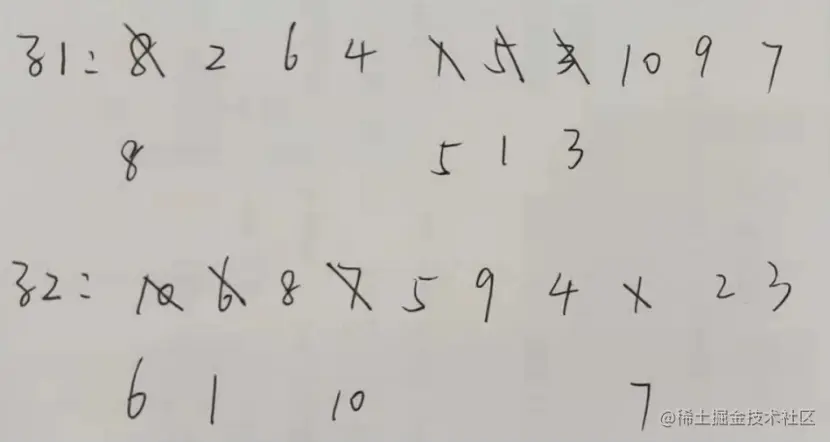 子1: 8 2 6 4 1 5 3 10 9 7
8 5 1 3
子2: 10 6 8 7 5 9 4 1 2 3
6 1 10 7
@稀土掘金技术社区